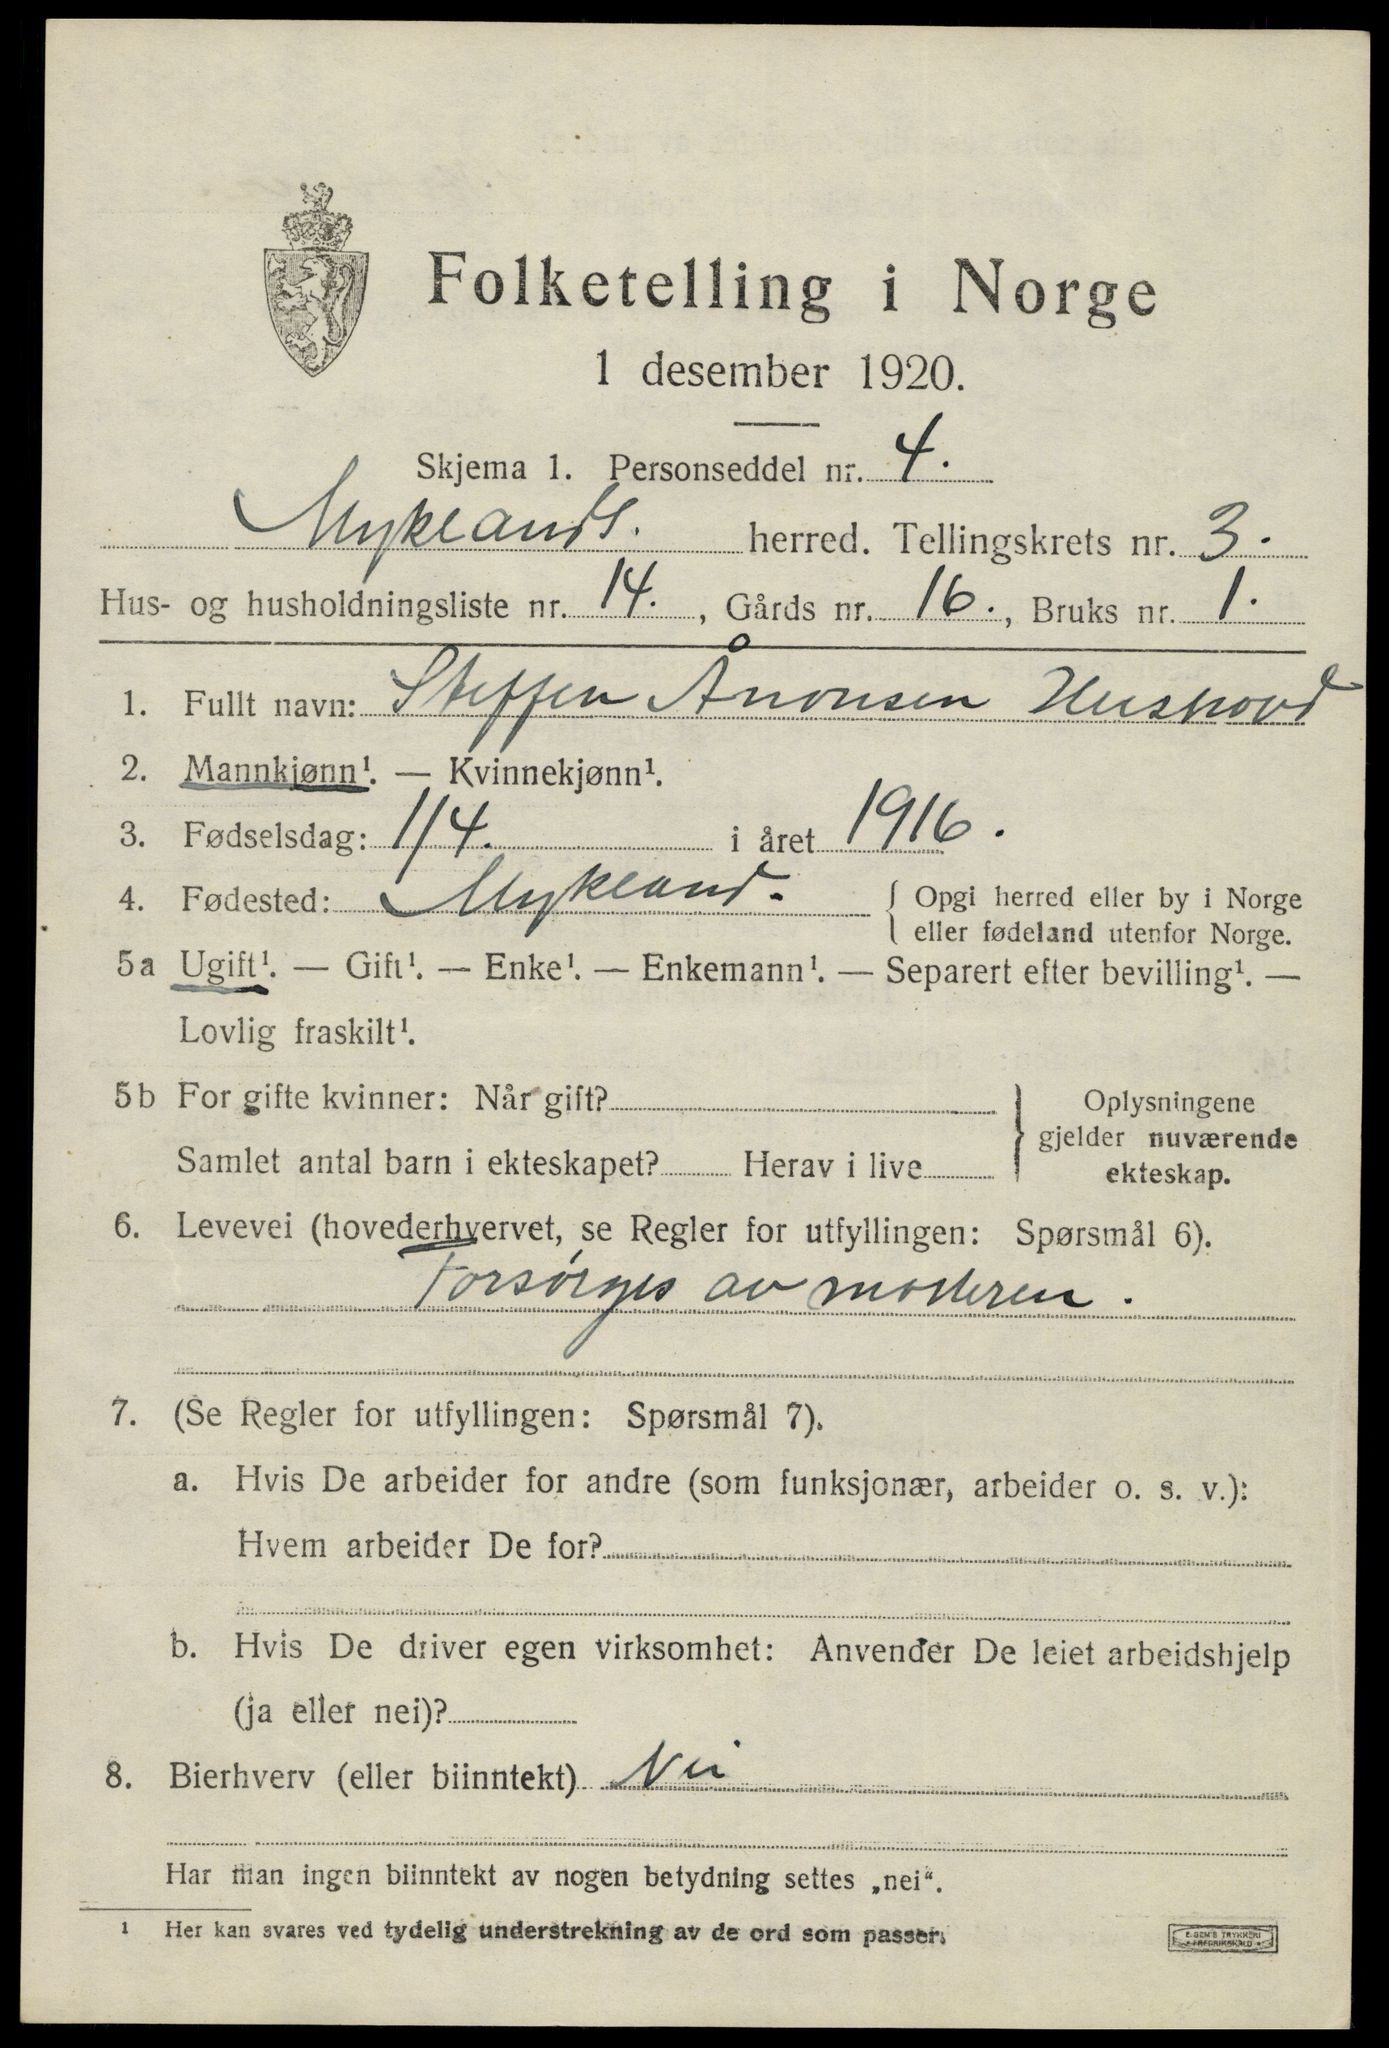 Folketelling i Norge
1 desember 1920.
Skjema 1. Personseddel nr. 4.
Myklands. herred. Tellingskrets nr. 3.
Hus- og husholdningsliste nr. 14., Gårds nr. 16., Bruks nr. 1.
1. Fullt navn: Steffen Ånonsen Hushovd
2. Mannkjønn¹. — Kvinnekjønn¹.
3. Fødselsdag: 1/4. i året 1916.
4. Fødested: Mykland. { Opgi herred eller by i Norge
eller fødeland utenfor Norge.
5a Ugift¹. — Gift¹. — Enke¹. — Enkemann¹. — Separert efter bevilling¹. —
Lovlig fraskilt¹.
5b For gifte kvinner: Når gift? } Oplysningene
gjelder nuværende
Samlet antal barn i ekteskapet? Herav i live
ekteskap.
6. Levevei (hovederhvervet, se Regler for utfyllingen: Spørsmål 6).
Forsørges av moderen.
7. (Se Regler for utfyllingen: Spørsmål 7).
a. Hvis De arbeider for andre (som funksjonær, arbeider o. s. v.):
Hvem arbeider De for?
b. Hvis De driver egen virksomhet: Anvender De leiet arbeidshjelp
(ja eller nei)?
8. Bierhverv (eller biinntekt) Nei
Har man ingen biinntekt av nogen betydning settes „nei“.
¹ Her kan svares ved tydelig understrekning av de ord som passer.
E. SEM'S TRYKKERI
FREDRIKSHALD